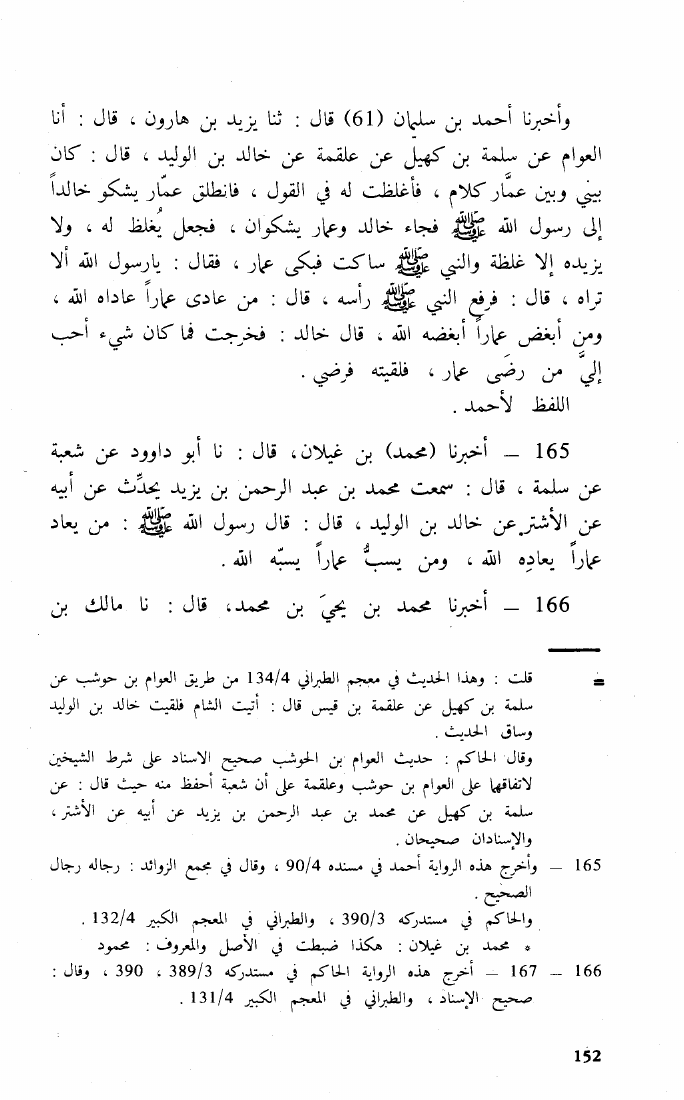 وأخبرنا أحمد بن سليمان (61) قال : ثنا يزيد بن هارون ، قال : أنا
العوام عن سلمة بن كهيل عن علقمة عن خالد بن الوليد ، قال : كان
بيني وبين عمَّار كلام ، فأغلظت له في القول ، فانطلق عمّار يشكو خالداً
إلى رسول الله ﷺ فجاء خالد وعمار يشكوان ، فجعل يُغلظ له ، ولا
يزيده إلا غلظة والنبي ﷺ ساكت فبكى عمار ، فقال : يارسول الله ألا
تراه ، قال : فرفع النبي ﷺ رأسه ، قال : من عادى عماراً عاداه الله ،
ومن أبغض عماراً أبغضه الله ، قال خالد : فخرجت فما كان شيء أحب
إليَّ من رضَى عمار ، فلقيته فرضي .
اللفظ لأحمد .
165 – أخبرنا (محمد) بن غيلان، قال : نا أبو داوود عن شعبة
عن سلمة ، قال : سمعت محمد بن عبد الرحمن بن يزيد يحدِّث عن أبيه
عن الأشتر عن خالد بن الوليد ، قال : قال رسول الله ﷺ : من يعاد
عماراً يعادِه الله ، ومن يسبُّ عماراً يسبّه الله .
166 – أخبرنا محمد بن يحيَ بن محمد، قال : نا مالك بن
= قلت : وهذا الحديث في معجم الطبراني 134/4 من طريق العوام بن حوشب عن
سلمة بن كهيل عن علقمة بن قيس قال : أتيت الشام فلقيت خالد بن الوليد
وساق الحديث .
وقال الحاكم : حديث العوام بن الحوشب صحيح الاسناد على شرط الشيخين
لاتفاقهما على العوام بن حوشب وعلقمة على أن شعبة أحفظ منه حيث قال : عن
سلمة بن كهيل عن محمد بن عبد الرحمن بن يزيد عن أبيه عن الأشتر ،
والإسنادان صحيحان .
165 – وأخرج هذه الرواية أحمد في مسنده 90/4 ، وقال في مجمع الزوائد : رجاله رجال
الصحيح .
والحاكم في مستدركه 390/3 ، والطبراني في المعجم الكبير 132/4 .
* محمد بن غيلان : هكذا ضبطت في الأصل والمعروف : محمود
166 – 167 – أخرج هذه الرواية الحاكم في مستدركه 389/3 ، 390 ، وقال :
صحيح الإسناد ، والطبراني في المعجم الكبير 131/4 .
152